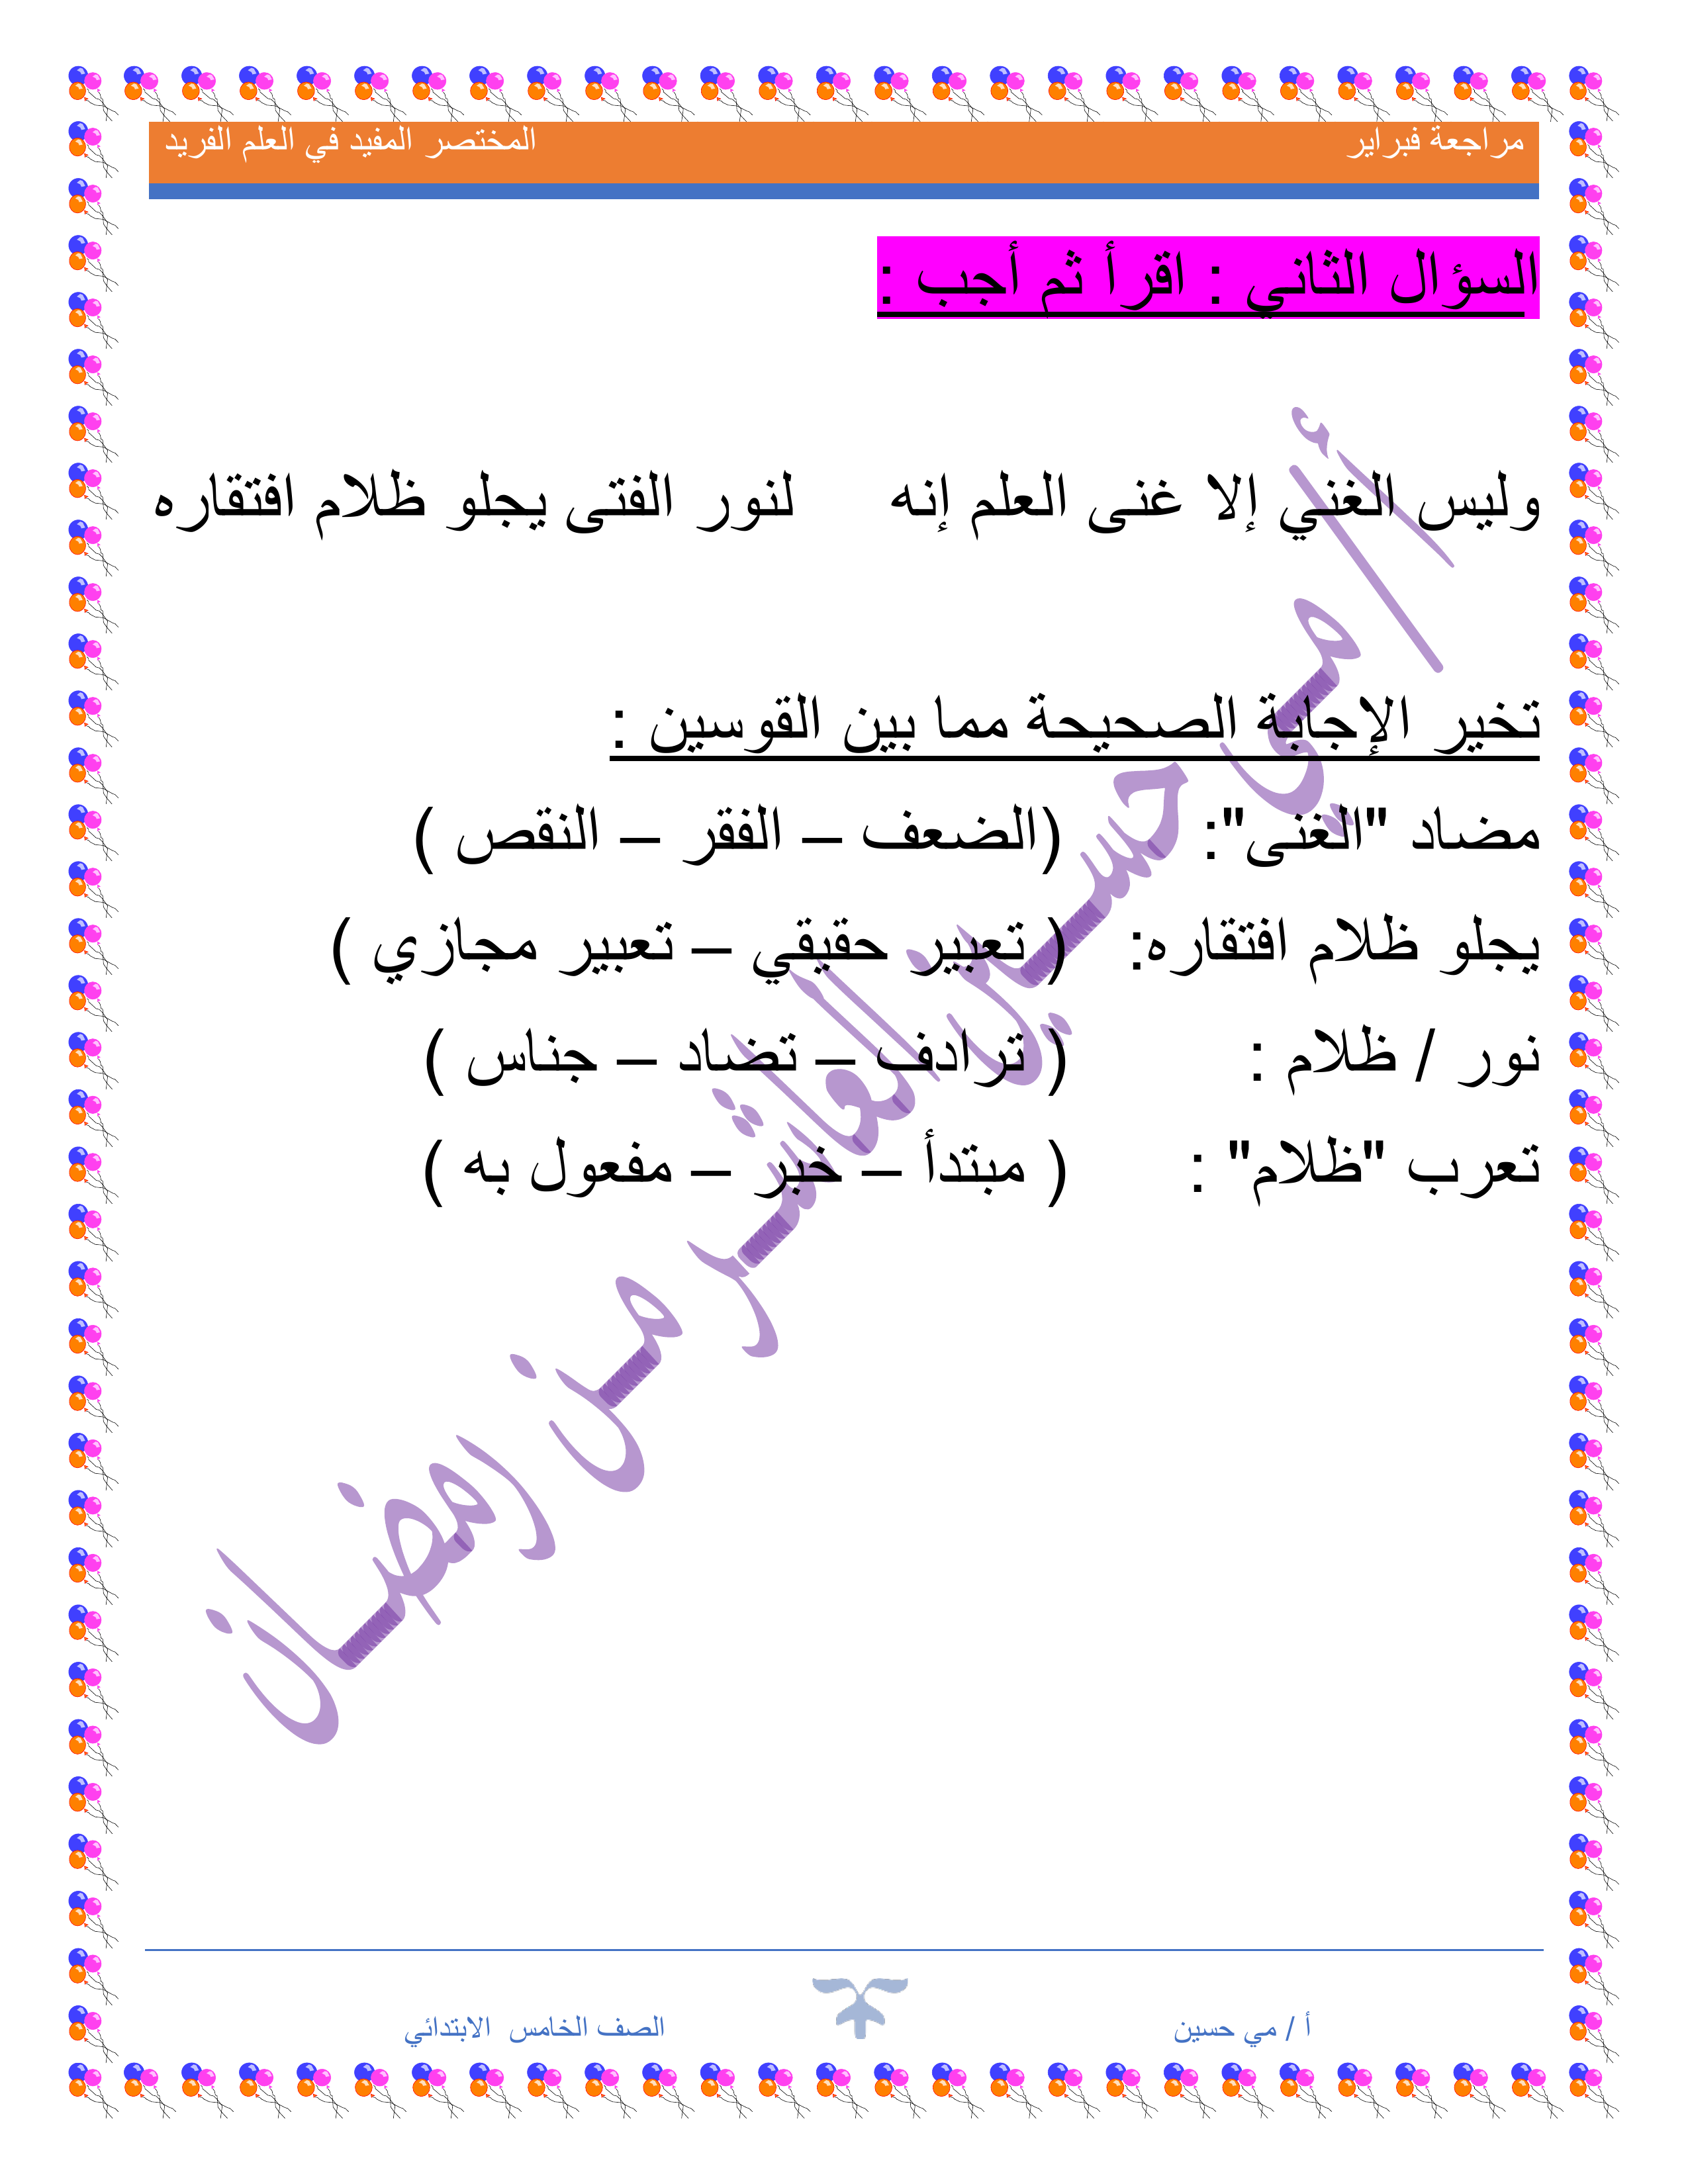 مراجعة فبراير المختصر المفيد في العلم الفريد
السؤال الثاني : اقرأ ثم أجب :
وليس الغني إلا غنى العلم إنه لنور الفتى يجلو ظلام افتقاره
تخير الإجابة الصحيحة مما بين القوسين :
مضاد "الغنى": (الضعف – الفقر – النقص )
يجلو ظلام افتقاره: ( تعبير حقيقي – تعبير مجازي )
نور / ظلام : ( ترادف – تضاد – جناس )
تعرب "ظلام" : ( مبتدأ – خبر – مفعول به )
أ/ مى حسين العاشر من رمضان
أ / مي حسين الصف الخامس الابتدائي